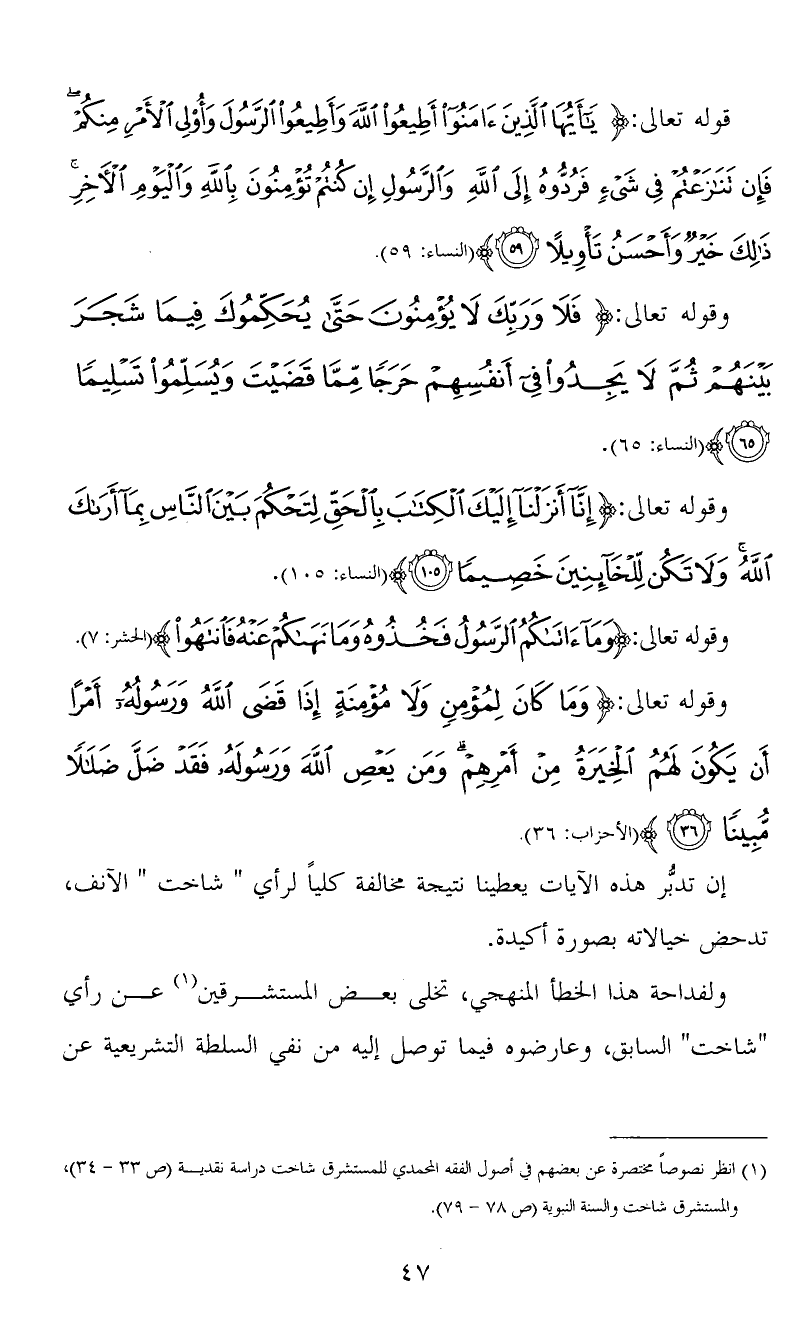 قوله تعالى: ﴿ يَٰٓأَيُّهَا ٱلَّذِينَ ءَامَنُوٓا۟ أَطِيعُوا۟ ٱللَّهَ وَأَطِيعُوا۟ ٱلرَّسُولَ وَأُو۟لِى ٱلْأَمْرِ مِنكُمْ ۖ
فَإِن تَنَٰزَعْتُمْ فِى شَىْءٍ فَرُدُّوهُ إِلَى ٱللَّهِ وَٱلرَّسُولِ إِن كُنتُمْ تُؤْمِنُونَ بِٱللَّهِ وَٱلْيَوْمِ ٱلْأَخِرِ ۚ
ذَٰلِكَ خَيْرٌ وَأَحْسَنُ تَأْوِيلًا ٥٩ ﴾(النساء: ٥٩).
وقوله تعالى: ﴿ فَلَا وَرَبِّكَ لَا يُؤْمِنُونَ حَتَّىٰ يُحَكِّمُوكَ فِيمَا شَجَرَ
بَيْنَهُمْ ثُمَّ لَا يَجِدُوا۟ فِىٓ أَنفُسِهِمْ حَرَجًا مِّمَّا قَضَيْتَ وَيُسَلِّمُوا۟ تَسْلِيمًا
٦٥ ﴾(النساء: ٦٥).
وقوله تعالى: ﴿ إِنَّآ أَنزَلْنَآ إِلَيْكَ ٱلْكِتَٰبَ بِٱلْحَقِّ لِتَحْكُمَ بَيْنَ ٱلنَّاسِ بِمَآ أَرَىٰكَ
ٱللَّهُ ۚ وَلَا تَكُن لِّلْخَآئِنِينَ خَصِيمًا ١٠٥ ﴾(النساء: ١٠٥).
وقوله تعالى: ﴿وَمَآ ءَاتَىٰكُمُ ٱلرَّسُولُ فَخُذُوهُ وَمَا نَهَىٰكُمْ عَنْهُ فَٱنتَهُوا۟ ﴾(الحشر: ٧).
وقوله تعالى: ﴿ وَمَا كَانَ لِمُؤْمِنٍ وَلَا مُؤْمِنَةٍ إِذَا قَضَى ٱللَّهُ وَرَسُولُهُۥٓ أَمْرًا
أَن يَكُونَ لَهُمُ ٱلْخِيَرَةُ مِنْ أَمْرِهِمْ ۗ وَمَن يَعْصِ ٱللَّهَ وَرَسُولَهُۥ فَقَدْ ضَلَّ ضَلَٰلًا
مُّبِينًا ٣٦ ﴾(الأحزاب: ٣٦).
إن تدبُّر هذه الآيات يعطينا نتيجة مخالفة كلياً لرأي " شاخت " الآنف،
تدحض خيالاته بصورة أكيدة.
ولفداحة هذا الخطأ المنهجي، تخلى بعض المستشرقين(١) عن رأي
"شاخت" السابق، وعارضوه فيما توصل إليه من نفي السلطة التشريعية عن
(١) انظر نصوصاً مختصرة عن بعضهم في أصول الفقه المحمدي للمستشرق شاخت دراسة نقدية (ص ٣٣ - ٣٤)،
والمستشرق شاخت والسنة النبوية (ص ٧٨ - ٧٩).
٤٧